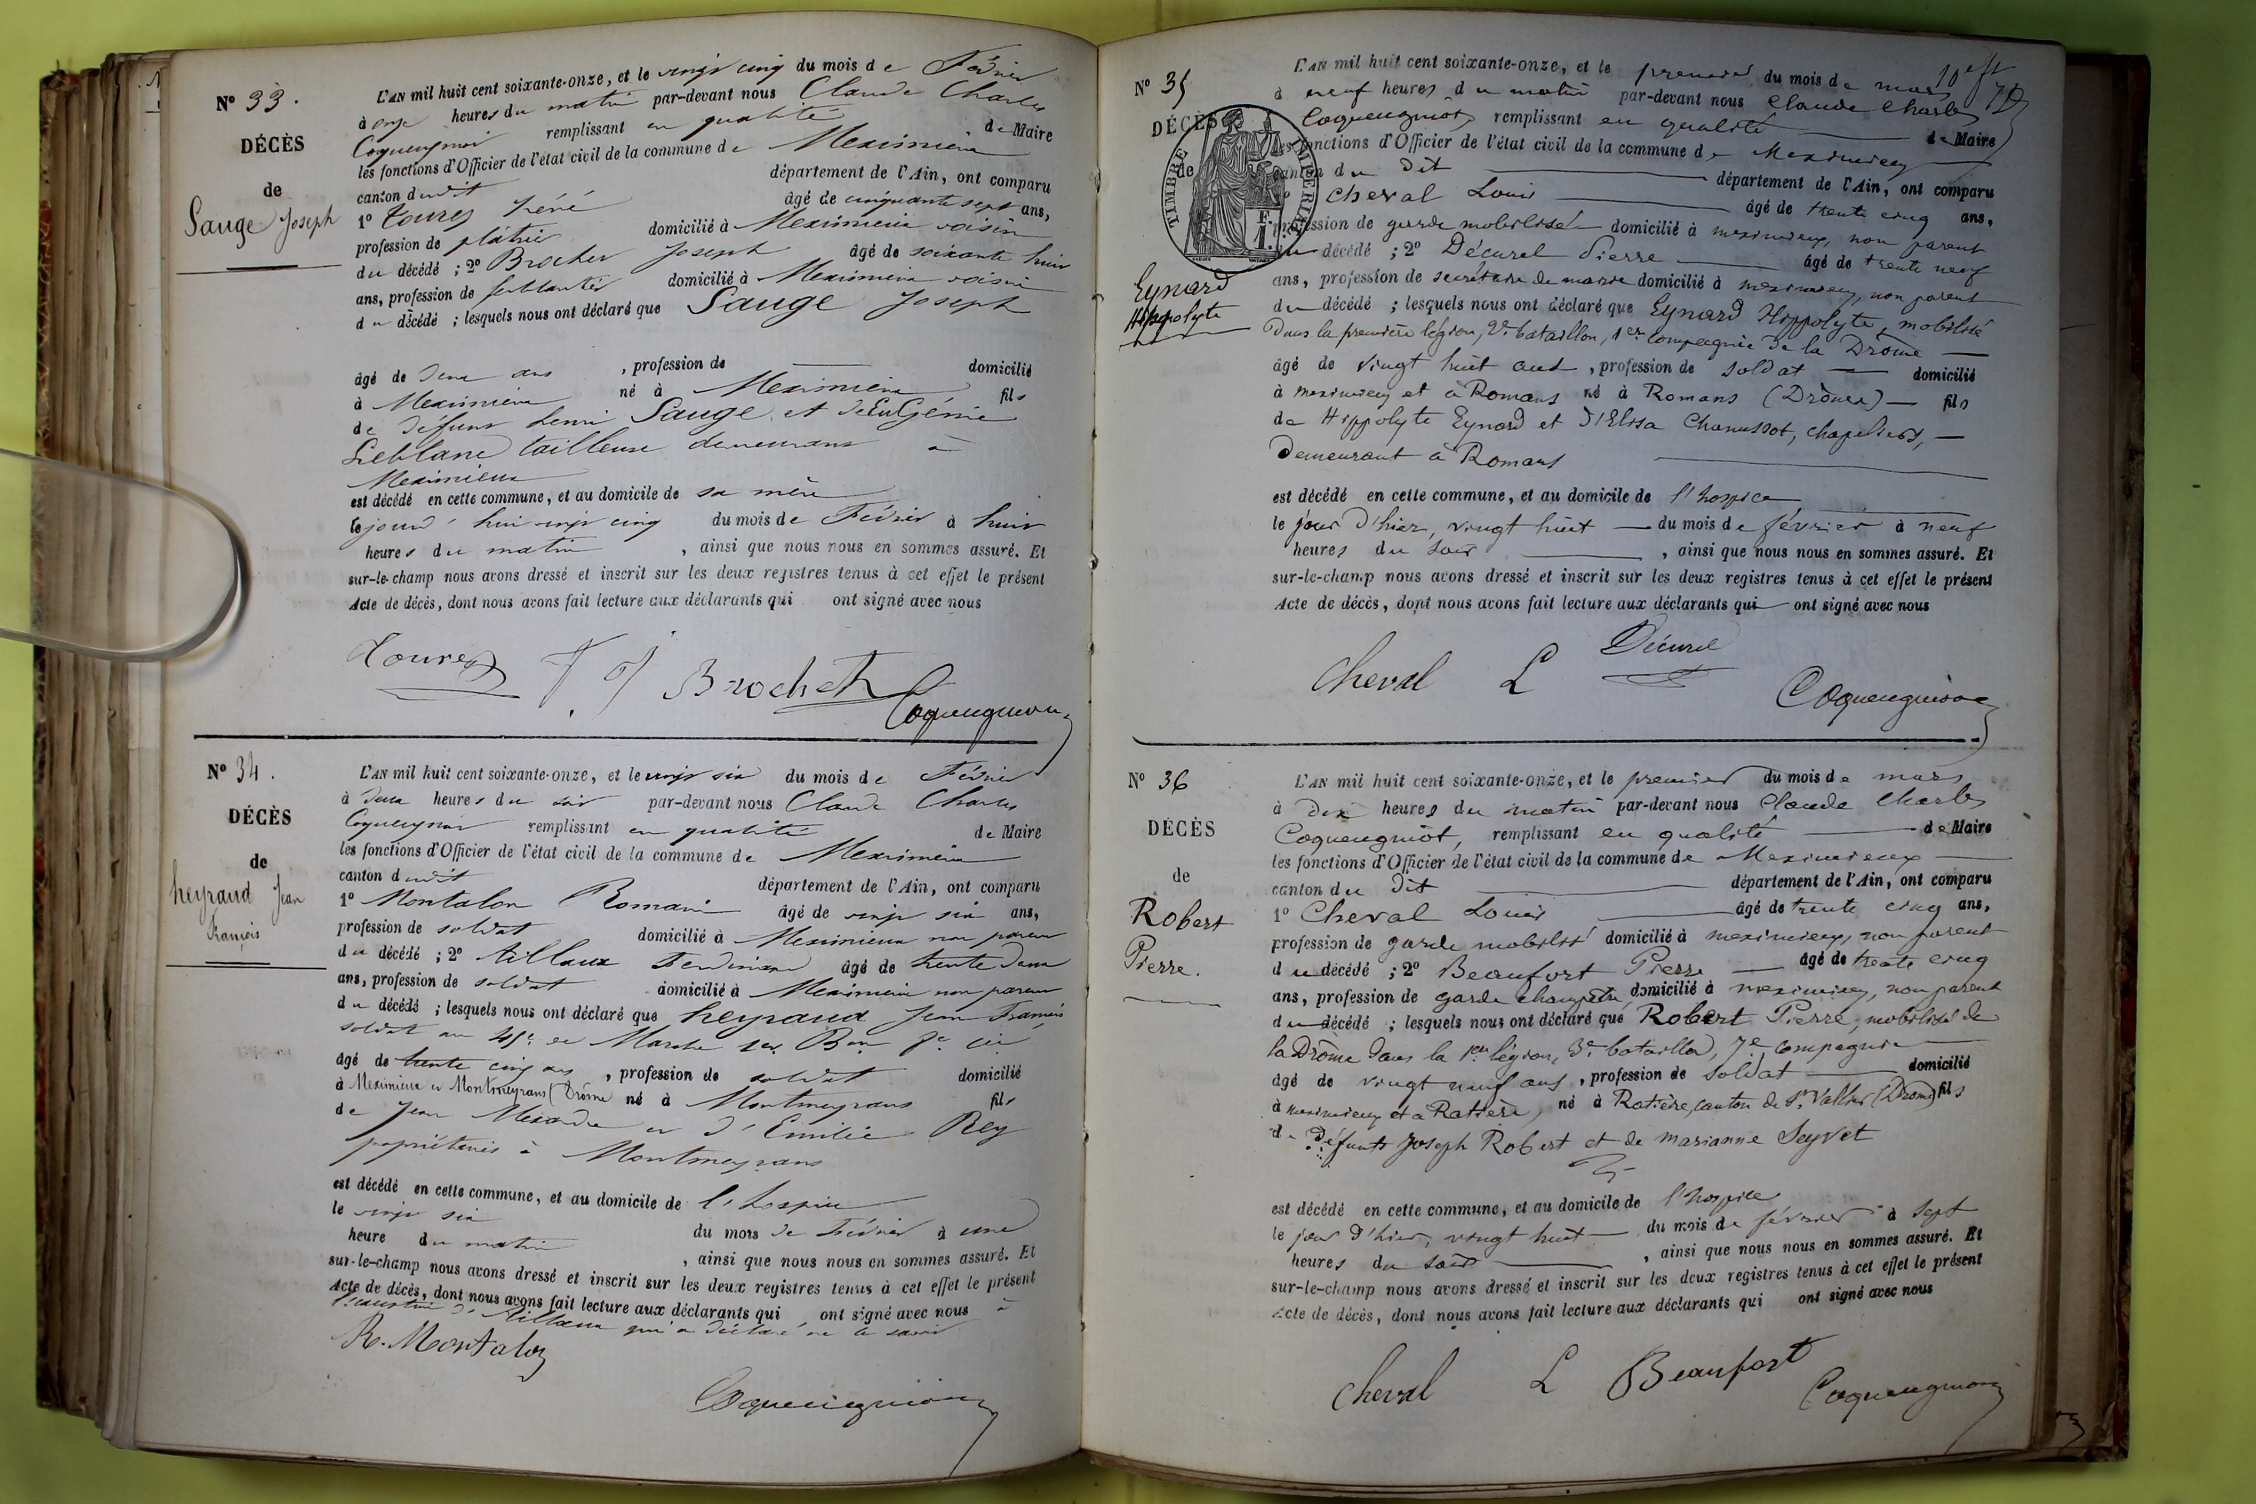 N° 33.
DÉCÈS
de
Sauge Joseph
L'AN mil huit cent soixante-onze, et le vingt cinq du mois de Février
à onze heures du matin par-devant nous Claude Charles
Coqueugniot remplissant en qualité de Maire
les fonctions d'Officier de l'état civil de la commune de Meximieux
canton dudit département de l'Ain, ont comparu
1° Tourez Réné âgé de cinquante sept ans,
profession de plâtrier domicilié à Meximieux voisin
du décédé ; 2° Brochet Joseph âgé de soixante huit
ans, profession de ferblantier domicilié à Meximieux voisin
du décédé ; lesquels nous ont déclaré que Sauge Joseph
âgé de deux ans , profession de domicilié
à Meximieux né à Meximieux fils
de defunt henri Sauge et de Eugénie
Leblanc tailleuse demeurant à
Meximieux
est décédé en cette commune, et au domicile de sa mère
le jourd'hui vingt cinq du mois de Février à huit
heures du matin , ainsi que nous nous en sommes assuré. Et
sur-le-champ nous avons dressé et inscrit sur les deux registres tenus à cet effet le présent
Acte de décès, dont nous avons fait lecture aux déclarants qui ont signé avec nous
Tourez Brochet
Coqueugniot
N° 34.
DÉCÈS
de
heyraud Jean
François
L'AN mil huit cent soixante-onze, et le vingt six du mois de Février
à deux heures du soir par-devant nous Claude Charles
Coqueugniot remplissant en qualité de Maire
les fonctions d'Officier de l'état civil de la commune de Meximieux
canton dudit département de l'Ain, ont comparu
1° Montalon Romain âgé de vingt six ans,
profession de soldat domicilié à Meximieux non parent
du décédé ; 2° tillaux Ferdinand âgé de trente deux
ans, profession de soldat domicilié à Meximieux non parent
du décédé ; lesquels nous ont déclaré que heyraud Jean François
soldat au 45e de Marche 1er Bon 7e cie
âgé de trente cinq ans , profession de soldat domicilié
à Meximieux et Montmeyrans (Drôme né à Montmeyrans fils
de Jean Alexandre et d'Emilie Rey
propriétaires à Montmeyrans
est décédé en cette commune, et au domicile de l'hospice
le vingt six du mois de Février à une
heure du matin , ainsi que nous nous en sommes assuré. Et
sur-le-champ nous avons dressé et inscrit sur les deux registres tenus à cet effet le présent
Acte de décès, dont nous avons fait lecture aux déclarants qui ont signé avec nous à
l'exception d'tillaux qui a déclaré ne le savoir
R. Montalon
Coqueugniot
N° 35
DÉCÈS
de
TIMBRE IMPERIAL
Eynard
Hippolyte
L'AN mil huit cent soixante-onze, et le premier du mois de mars
à neuf heures du matin par-devant nous Claude Charles
Coqueugniot, remplissant en qualité de Maire
les fonctions d'Officier de l'état civil de la commune de Meximieux
canton du dit département de l'Ain, ont comparu
Cheval Louis âgé de trente cinq ans,
profession de garde mobilisé domicilié à meximieux, non parent
du décédé ; 2° Décurel Pierre âgé de trente neuf
ans, profession de secrétaire de mairie domicilié à meximieux, non parent
du décédé ; lesquels nous ont déclaré que Eynard Hippolyte, mobilisé
Dans la première légion, 2e bataillon, 1ere compagnie de la Drôme
âgé de vingt huit ans , profession de soldat domicilié
à meximieux et à Romans né à Romans (Drôme) fils
de Hippolyte Eynard et d'Elisa Chanussot, chapeliers,
Demeurant à Romans
est décédé en cette commune, et au domicile de l'hospice
le jour d'hier, vingt huit du mois de février à neuf
heures du soir , ainsi que nous nous en sommes assuré. Et
sur-le-champ nous avons dressé et inscrit sur les deux registres tenus à cet effet le présent
Acte de décès, dont nous avons fait lecture aux déclarants qui ont signé avec nous
Cheval L Décurel
Coqueugniot
N° 36
DÉCÈS
de
Robert
Pierre.
L'AN mil huit cent soixante-onze, et le premier du mois de mars
à Dix heures du matin par-devant nous Claude Charles
Coqueugniot, remplissant en qualité de Maire
les fonctions d'Officier de l'état civil de la commune de Meximieux
canton du Dit département de l'Ain, ont comparu
1° Cheval Louis âgé de trente cinq ans,
profession de garde mobilisé domicilié à meximieux, non parent
du décédé ; 2° Beaufort Pierre âgé de trente cinq
ans, profession de garde champêtre domicilié à meximieux, non parent
du décédé ; lesquels nous ont déclaré que Robert Pierre, mobilisé de
la Drôme dans la 1ere légion, 3e bataillon, 7e compagnie
âgé de vingt neuf ans , profession de soldat domicilié
à meximieux et à Ratière, né à Ratière, canton de St Vallier (Drôme) fils
de Défunts Joseph Robert et de marianne Seyvet
est décédé en cette commune, et au domicile de l'hospice
le jour d'hier, vingt huit du mois de février à sept
heures du soir , ainsi que nous nous en sommes assuré. Et
sur-le-champ nous avons dressé et inscrit sur les deux registres tenus à cet effet le présent
Acte de décès, dont nous avons fait lecture aux déclarants qui ont signé avec nous
Cheval L Beaufort
Coqueugniot